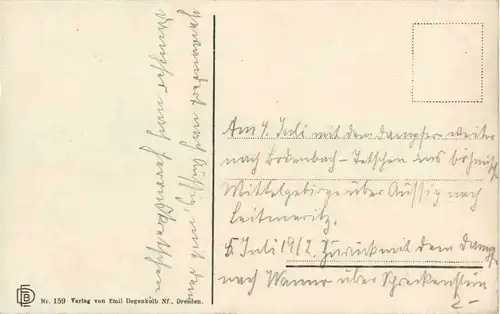 Am 4. Juli mit dem Dampfer weiter
nach Bodenbach-Tetschen ins böhmische
Mittelgebirge über Aussig nach
Leitmeritz.
5. Juli 1912. Zurück mit dem Dampf
nach Wannow über Schreckenstein
nach Aussig, mit dem
Dampfer nach
Nr. 159 Verlag von Emil Degenkolb Nf., Dresden.